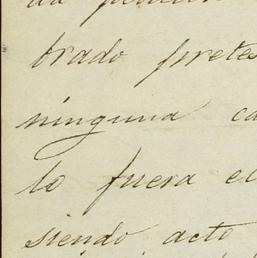 brado pretes
ninguna ca
lo fuera el
siendo acto